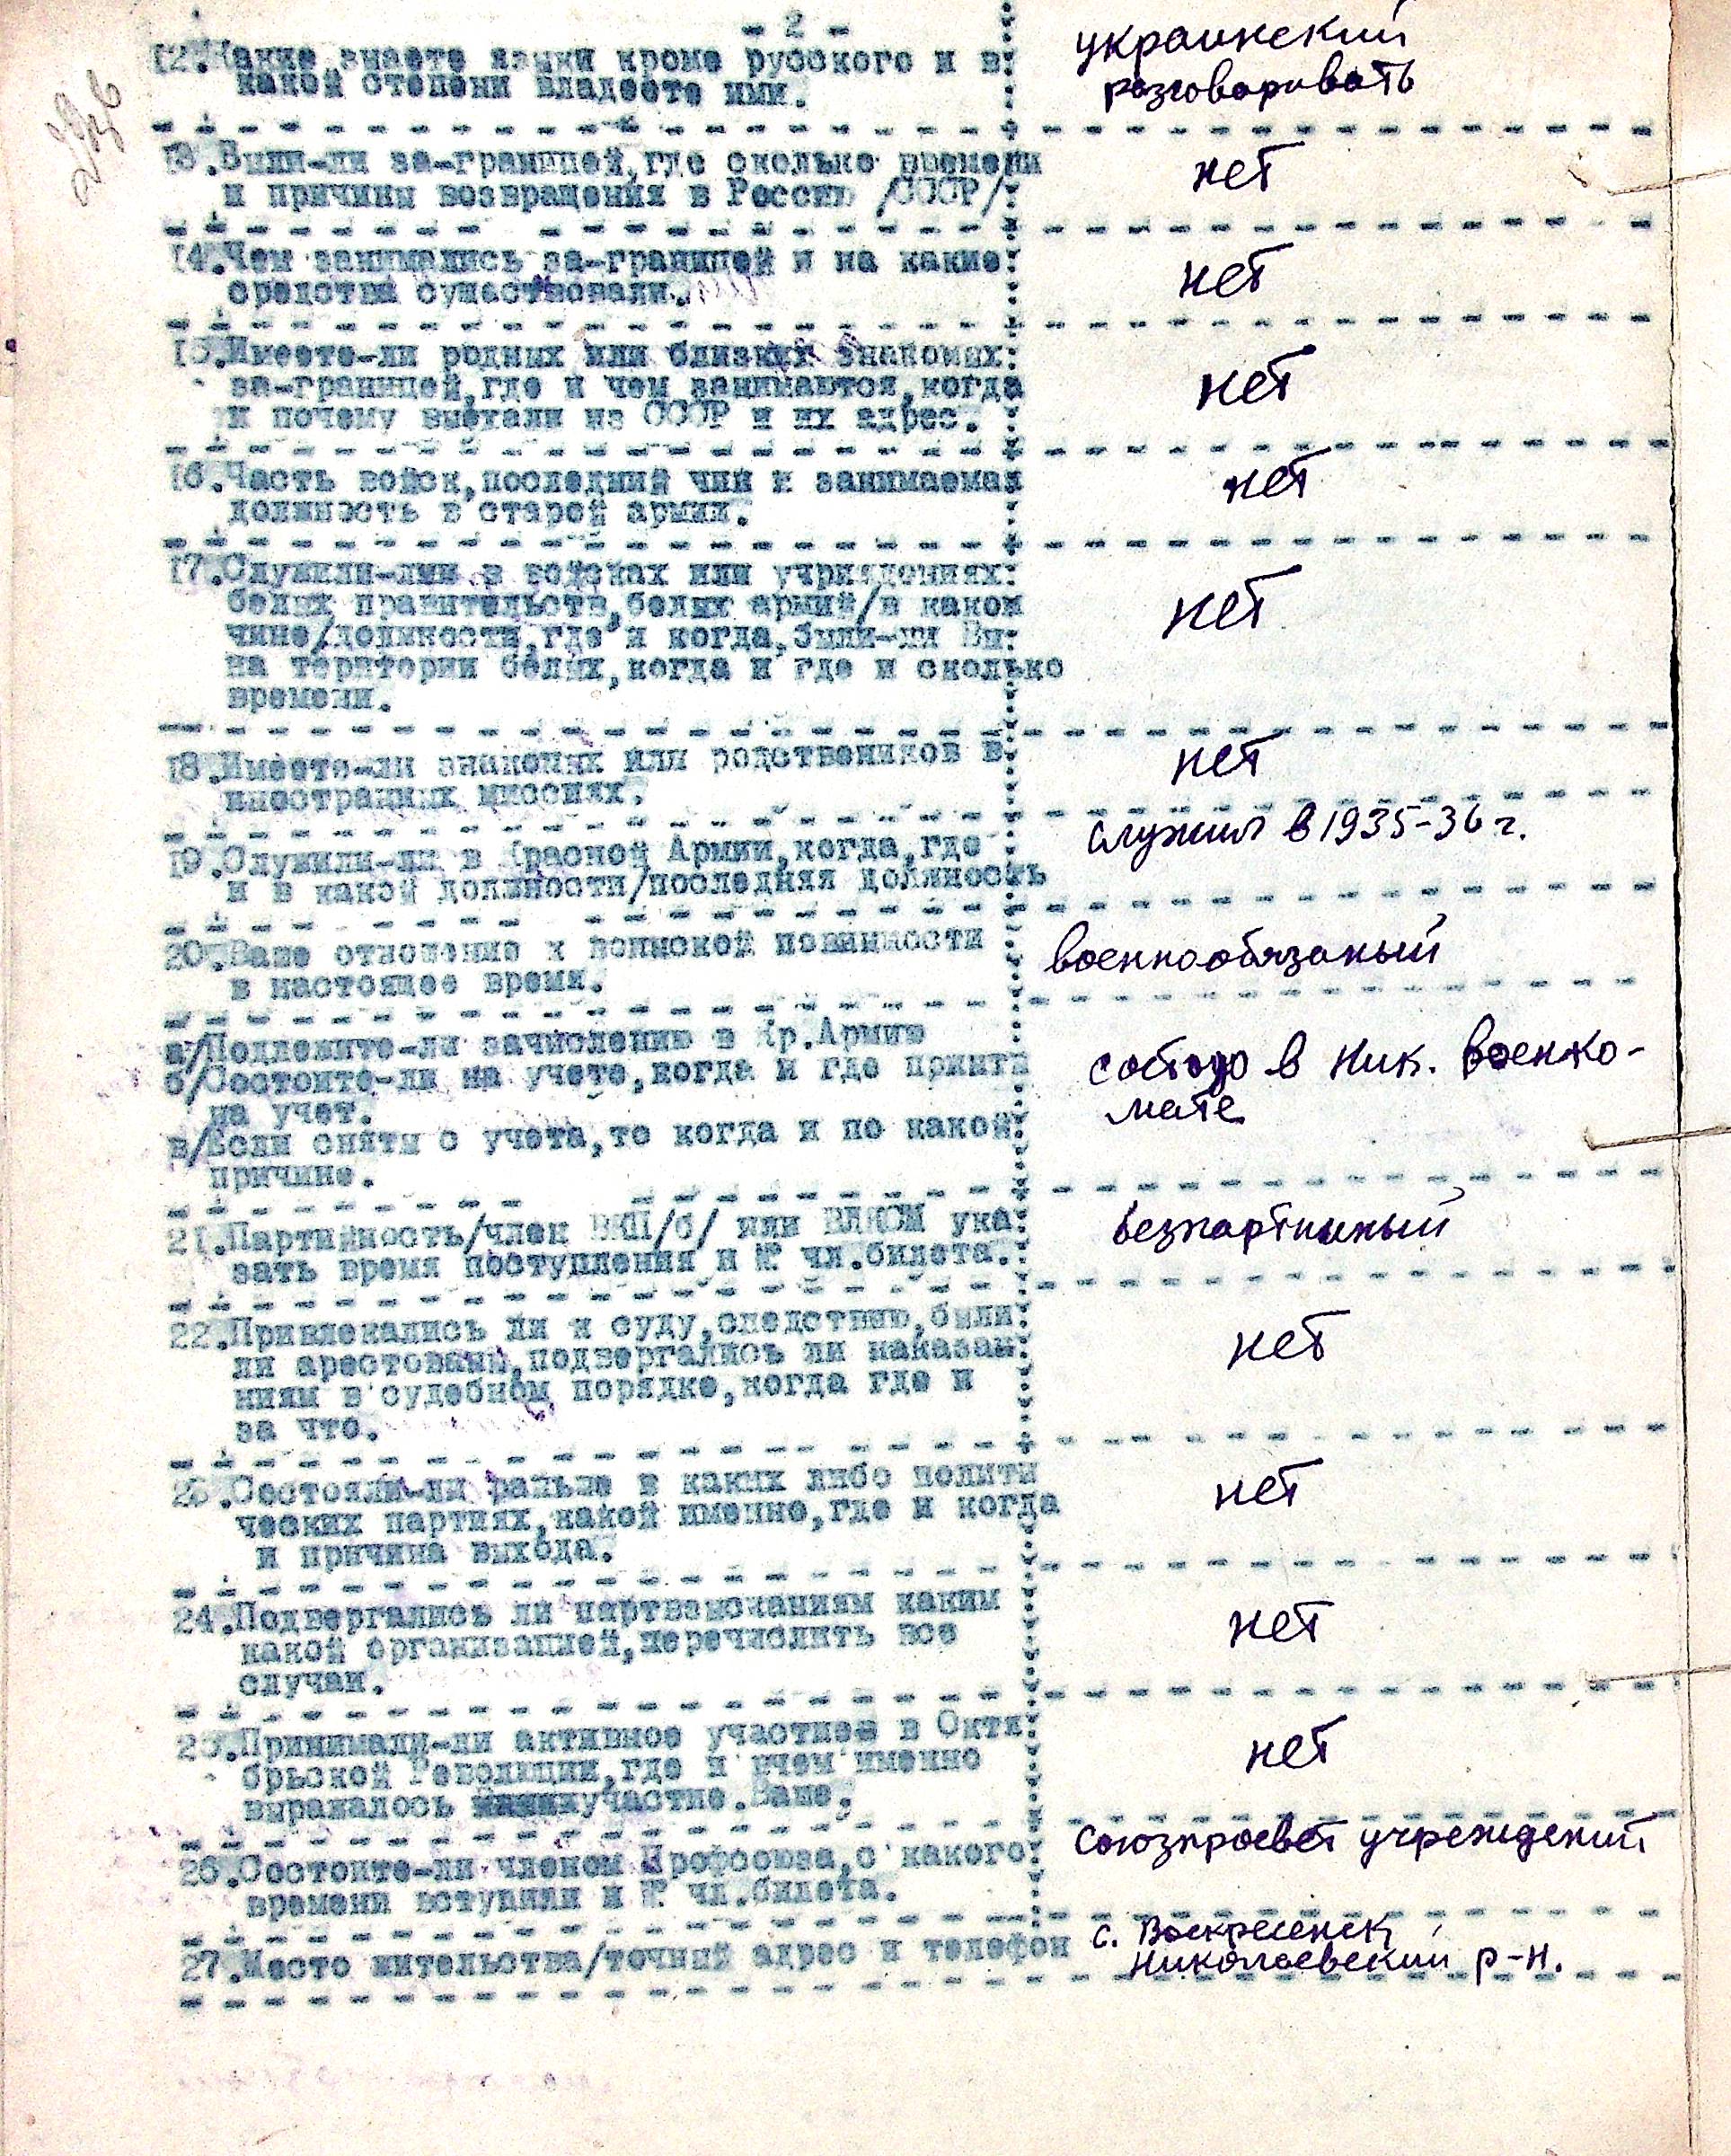 - 2 -
12.Какие знаете языки кроме русского и в
какой степени владеете ими.
украинский
разговаривать
13.Были-ли за-границей,где сколько времени
и причины возвращения в Россию /СССР/
нет
14.Чем занимались за-границей и на какие
средства существовали.
нет
15.Имеете-ли родных или близких знакомых
за-границей,где и чем занимаются,когда
и почему выехали из СССР и их адрес.
нет
16.Часть войск,последний чин и занимаемая
должность в старой армии.
нет
17.Служили-лии в войсках или учриждениях
белых правительств,белых армий/в каком
чине/должности,где и когда,были-ли Вы
на територии белых,когда и где и сколько
времени.
нет
18.Имеете-ли знакомых или родственников в
иностраных миссиях.
нет
19.Служили-ли в Красной Армии,когда,где
и в какой должности/последняя должность
служил в 1935-36 г.
20.Ваше отношение к воинской повинности
в настоящее время.
военнообязаный
а/Подлежите-ли зачислению в Кр.Армию
б/Состоите-ли на учете,когда и где приняты
на учет.
в/Если сняты с учета,то когда и по какой
причине.
состою в Ник. военко-
мате
21.Партийность/член ВКП/б/ или ВЛКСМ ука
зать время поступления и № чл.билета.
безпартийный
22.Привлекались ли к суду,следствию,были
ли арестованы,подвергались ли наказан
ниям в судебном порядке,когда где и
за что.
нет
23.Состояли-ли раньше в каких либо полити
ческих партиях,какой именно,где и когда
и причина выхода.
нет
24.Подвергались ли партвзысканиям каким
какой организацией,перечислить все
случаи.
нет
25.Принимали-ли активное участиее в Октя
брьской Революции,где и вчем именно
выражалось участие.Ваше,
нет
26.Состоите-ли членом Профсоюза,с какого
времени вступили и № чл.билета.
союзпросвет учреждений
27.Место жительства/точный адрес и телефон
с. Воскресенск,
Николаевский р-н.